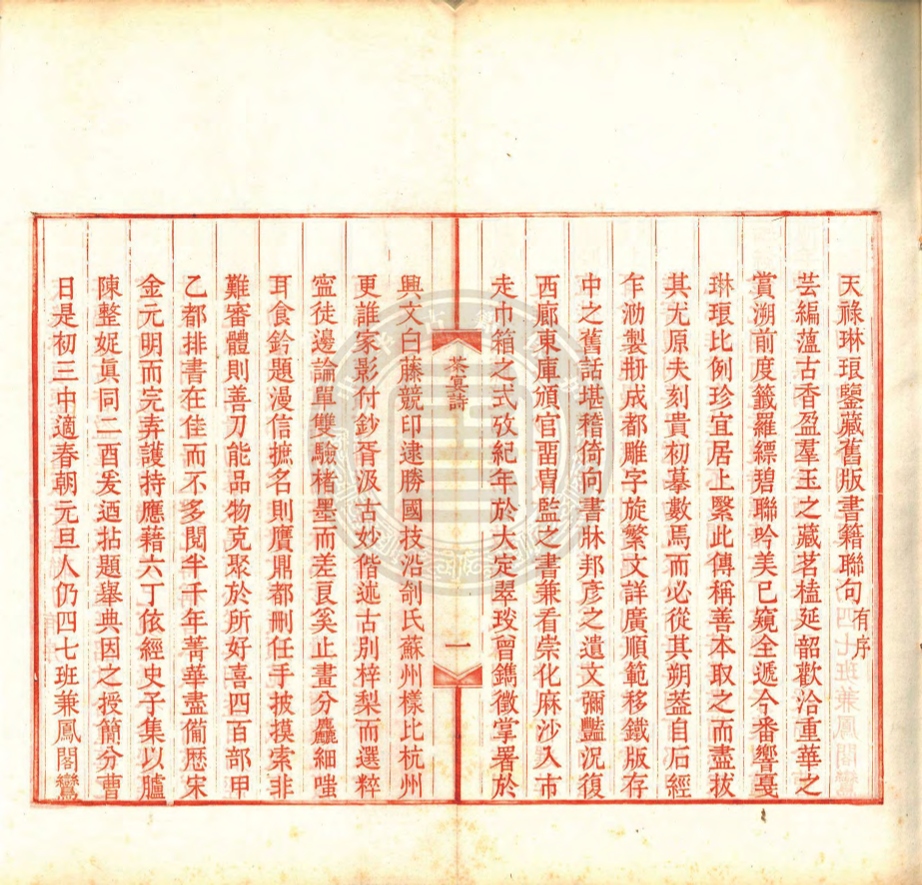 天祿琳琅鑒藏舊版書籍聯句有序
芸編薀古香盈羣玉之藏茗榼延韶歡洽重華之
賞溯前度籤羅縹碧聯吟美已窺全遞今番響戞
琳琅比例珍宜居上緊此傳稱善本取之而盡拔
其尤原夫刻貴初摹數焉而必從其朔葢自石經
乍泐製冊成都雕字旋繁文詳廣順範移鐵版存
中之舊話堪稽倚向書牀邦彥之遺文彌豔況復
西廊東庫頒官畱冑監之書兼看崇化麻沙入市
走巾箱之式攷紀年於大定翠琰曾鐫徵掌署於
茶宴詩
一
興文白藤競印逮勝國技沿剞氏蘇州樣比杭州
更誰家影付鈔胥汲古妙偕述古別梓棃而選粹
寧徒邊論單雙驗楮墨而差良奚止畫分麤細嗤
耳食鈐題漫信摭名則贋鼎都刪任手披摸索非
難審體則善刀能品物克聚於所好喜四百部甲
乙都排書在佳而不多閱半千年菁華盡備歷宋
金元明而完弆護持應藉六丁依經史子集以臚
陳整娖眞同二酉爰迺拈題舉典因之授簡分曹
日是初三中適春朝元旦人仍四七班兼鳳閣鸞